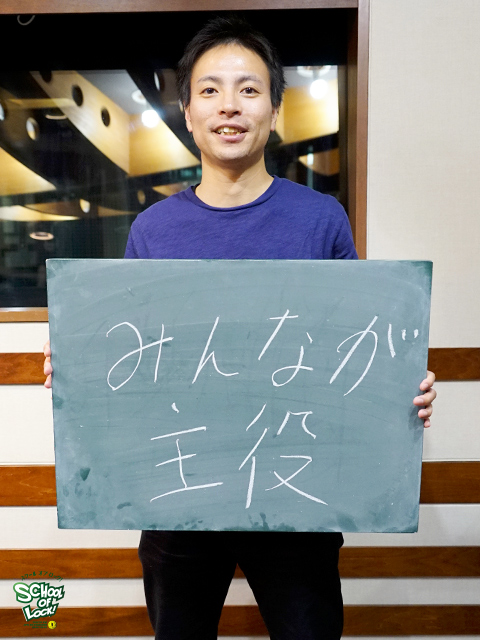 みんなが
主役
SCHOOL
OF
LOCK!